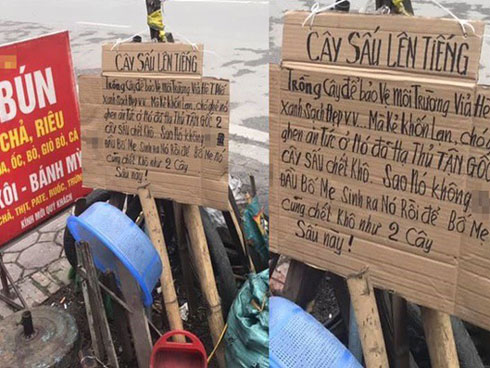 BÚN
CHẢ, RIÊU
ỐC, BÒ, GIÒ, CÁ
XÔI - BÁNH MỲ
CHẢ, THỊT, PATE, RUỐC, TRỨNG
KÍNH MỜI QUÝ KHÁCH
CÂY SẤU LÊN TIẾNG
Trồng Cây để bảo vệ môi Trường Vỉa Hè
xanh Sạch Đẹp v.v.. Mà kẻ khốn Lạn, chó ghẻ nó
ghen ăn Tức ở Nó đã Hạ Thủ TẬN GỐC 2
CÂY SẤU chết Khô. Sao Nó không
ĐÀU Bố Mẹ Sinh ra Nó Rồi để Bố Mẹ Nó
Cũng chết Khô như 2 Cây
Sấu này!
CÂY SẤU LÊN TIẾNG
Trồng Cây để bảo vệ môi Trường Vỉa Hè
xanh Sạch Đẹp v.v.. Mà kẻ khốn Lạn, chó
ghen ăn Tức ở Nó đã Hạ Thủ TẬN GỐC
CÂY SẤU chết Khô. Sao Nó không
ĐÀU Bố Mẹ Sinh ra Nó Rồi để Bố Mẹ
Cũng chết Khô như 2 Cây
Sấu này!